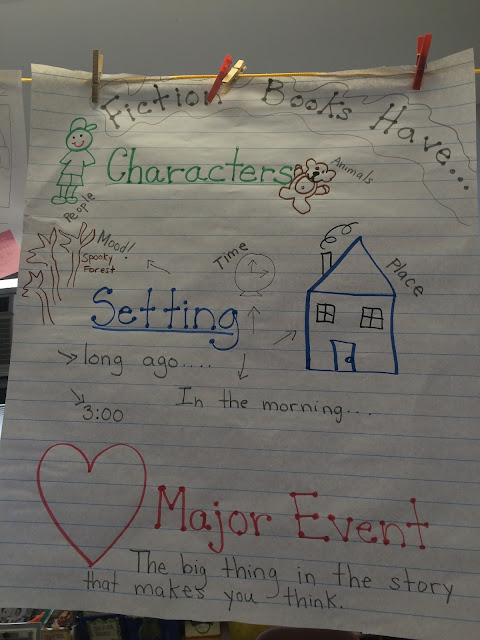 Fiction Books Have...
Characters
Animals
People
Mood!
Spooky
Forest
Time
Place
Setting
long ago....
3:00
In the morning....
Major Event
The big thing in the story
that makes you think.